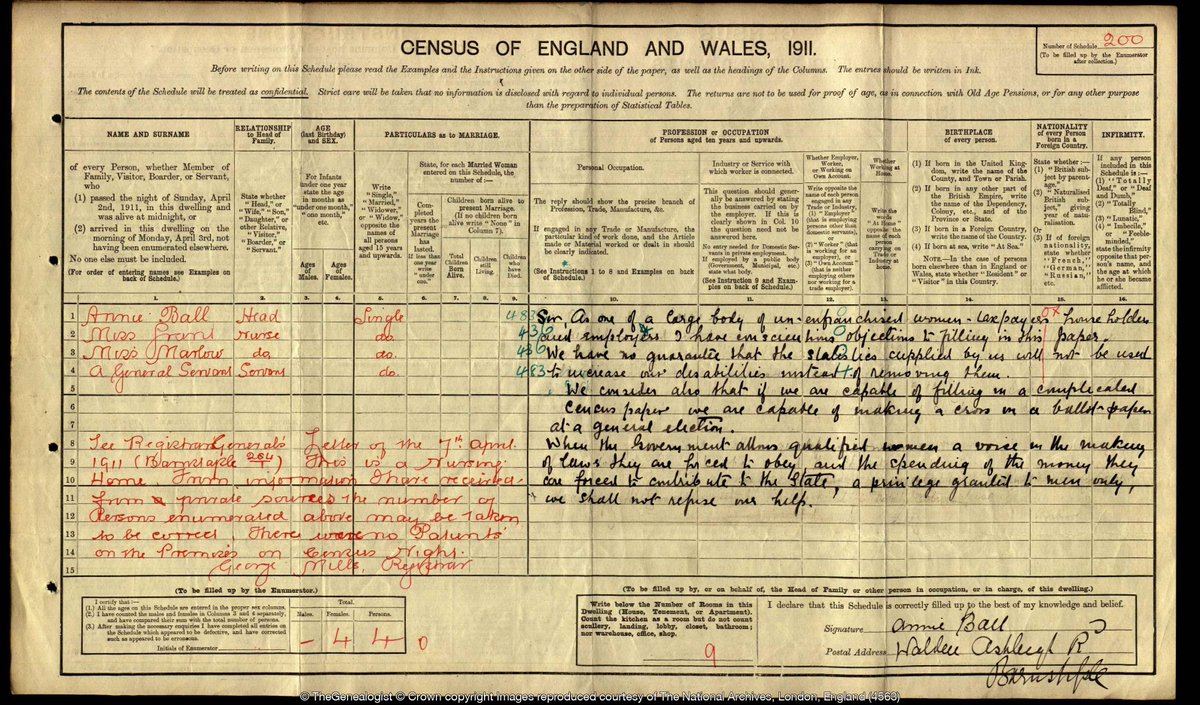 CENSUS OF ENGLAND AND WALES, 1911.
Number of Schedule 200
(To be filled up by the Enumerator
after collection.)
Before writing on this Schedule please read the Examples and the Instructions given on the other side of the paper, as well as the headings of the Columns. The entries should be written in Ink.
The contents of the Schedule will be treated as confidential. Strict care will be taken that no information is disclosed with regard to individual persons. The returns are not to be used for proof of age, as in connection with Old Age Pensions, or for any other purpose
than the preparation of Statistical Tables.
NAME AND SURNAME
of every Person, whether Member of
Family, Visitor, Boarder, or Servant,
who
(1) passed the night of Sunday, April
2nd, 1911, in this dwelling and
was alive at midnight, or
(2) arrived in this dwelling on the
morning of Monday, April 3rd, not
having been enumerated elsewhere.
No one else must be included.
(For order of entering names see Examples on
back of Schedule.)
RELATIONSHIP
to Head of
Family.
State whether
"Head," or
"Wife," "Son,"
"Daughter," or
other Relative,
"Visitor,"
"Boarder," or
"Servant."
AGE
(last Birthday)
and SEX.
For Infants
under one year
state the age
in months as
"under one month,"
"one month,"
etc.
Ages of Males.
Ages of Females.
PARTICULARS as to MARRIAGE.
Write
"Single,"
"Married,"
"Widower,"
or "Widow,"
opposite the
names of
all persons
aged 15 years
and upwards.
State, for each Married Woman
entered on this Schedule, the
number of:—
Completed
years the
present
Marriage
has lasted.
If less than
one year
write
"under
one."
Children born alive to
present Marriage.
(If no children born
alive write "None" in
Column 7).
Total
Children
Born
Alive.
Children
still
Living.
Children
who
have
Died.
PROFESSION or OCCUPATION
of Persons aged ten years and upwards.
Personal Occupation.
The reply should show the precise branch of
Profession, Trade, Manufacture, &c.
If engaged in any Trade or Manufacture, the
particular kind of work done, and the Article
made or Material worked or dealt in should
be clearly indicated.
(See Instructions 1 to 8 and Examples on back
of Schedule.)
Industry or Service with
which worker is connected.
This question should gener-
ally be answered by stating
the business carried on by
the employer. If this is
clearly shown in Col. 10
the question need not be
answered here.
No entry needed for Domestic Ser-
vants in private employment.
If employed by a public body
(Government, Municipal, etc.)
state what body.
(See Instruction 9 and Exam-
ples on back of Schedule.)
Whether Employer,
Worker,
or Working on
Own Account.
Write opposite the
name of each person
engaged in any
Trade or Industry,
(1) "Employer"
(that is employing
persons other than
domestic servants),
or
(2) "Worker" (that
is working for an
employer), or
(3) "Own Account"
(that is neither
employing others
nor working for a
trade employer).
Whether
Working at
Home.
Write the
words
"At Home"
opposite the
name of each
person
carrying on
Trade or
Industry at
home.
BIRTHPLACE
of every person.
(1) If born in the United King-
dom, write the name of the
County, and Town or Parish.
(2) If born in any other part of
the British Empire, write
the name of the Dependency,
Colony, etc., and of the
Province or State.
(3) If born in a Foreign Country,
write the name of the Country.
(4) If born at sea, write "At Sea."
NOTE.—In the case of persons
born elsewhere than in England or
Wales, state whether "Resident" or
"Visitor" in this Country.
NATIONALITY
of every Person
born in a
Foreign Country.
State whether:—
(1) "British sub-
ject by parent-
age,"
(2) "Naturalised
British sub-
ject," giving
year of natu-
ralisation.
Or
(3) If of foreign
nationality,
state whether
"French,"
"German,"
"Russian,"
etc.
INFIRMITY.
If any person
included in this
Schedule is:—
(1) "Totally
Deaf," or "Deaf
and Dumb,"
(2) "Totally
Blind,"
(3) "Lunatic,"
(4) "Imbecile,"
or "Feeble-
minded,"
state the infirmity
opposite that per-
son's name, and
the age at which
he or she became
afflicted.
1. 2. 3. 4. 5. 6. 7. 8. 9. 10. 11. 12. 13. 14. 15. 16.
1 Annie Ball Head Single 483
2 Miss Grant Nurse do. 436
3 Miss Marlow do. do. 436
4 A General Servant Servant do. 483
5
6
7
8 See Registrar General's Letter of the 7th April
9 1911 (Barnstaple 264/1) This is a Nursing
10 Home From information I have received
11 from a private source the number of
12 Persons enumerated above may be taken
13 to be correct. There were no Patients
14 on the Premises on Census Night.
15 George Mills, Registrar
Sir. As one of a large body of un-enfranchised women-taxpayers house holders
and employers I have conscientious objections to filling in this paper.
We have no guarantee that the statistics supplied by us will not be used
to increase our disabilities instead of removing them.
We consider also that if we are capable of filling in a complicated
census paper we are capable of making a cross on a ballot-paper
at a general election.
When the Government allows qualified women a voice in the making
of laws they are forced to obey and the spending of the money they
are forced to contribute to the State, a privilege granted to men only,
we shall not refuse our help.
(To be filled up by the Enumerator.)
I certify that:—
(1.) All the ages on this Schedule are entered in the proper sex columns.
(2.) I have counted the males and females in Columns 3 and 4 separately,
and have compared their sum with the total number of persons.
(3.) After making the necessary enquiries I have completed all entries on
the Schedule which appeared to be defective, and have corrected
such as appeared to be erroneous.
Initials of Enumerator
Total.
Males. Females. Persons.
– 4 4 0
(To be filled up by, or on behalf of, the Head of Family or other person in occupation, or in charge, of this dwelling.)
Write below the Number of Rooms in this
Dwelling (House, Tenement, or Apartment).
Count the kitchen as a room but do not count
scullery, landing, lobby, closet, bathroom;
nor warehouse, office, shop.
9
I declare that this Schedule is correctly filled up to the best of my knowledge and belief.
Signature Annie Ball
Postal Address Ashleigh Rd
Barnstaple
© TheGenealogist © Crown copyright Images reproduced courtesy of The National Archives, London, England (4563)